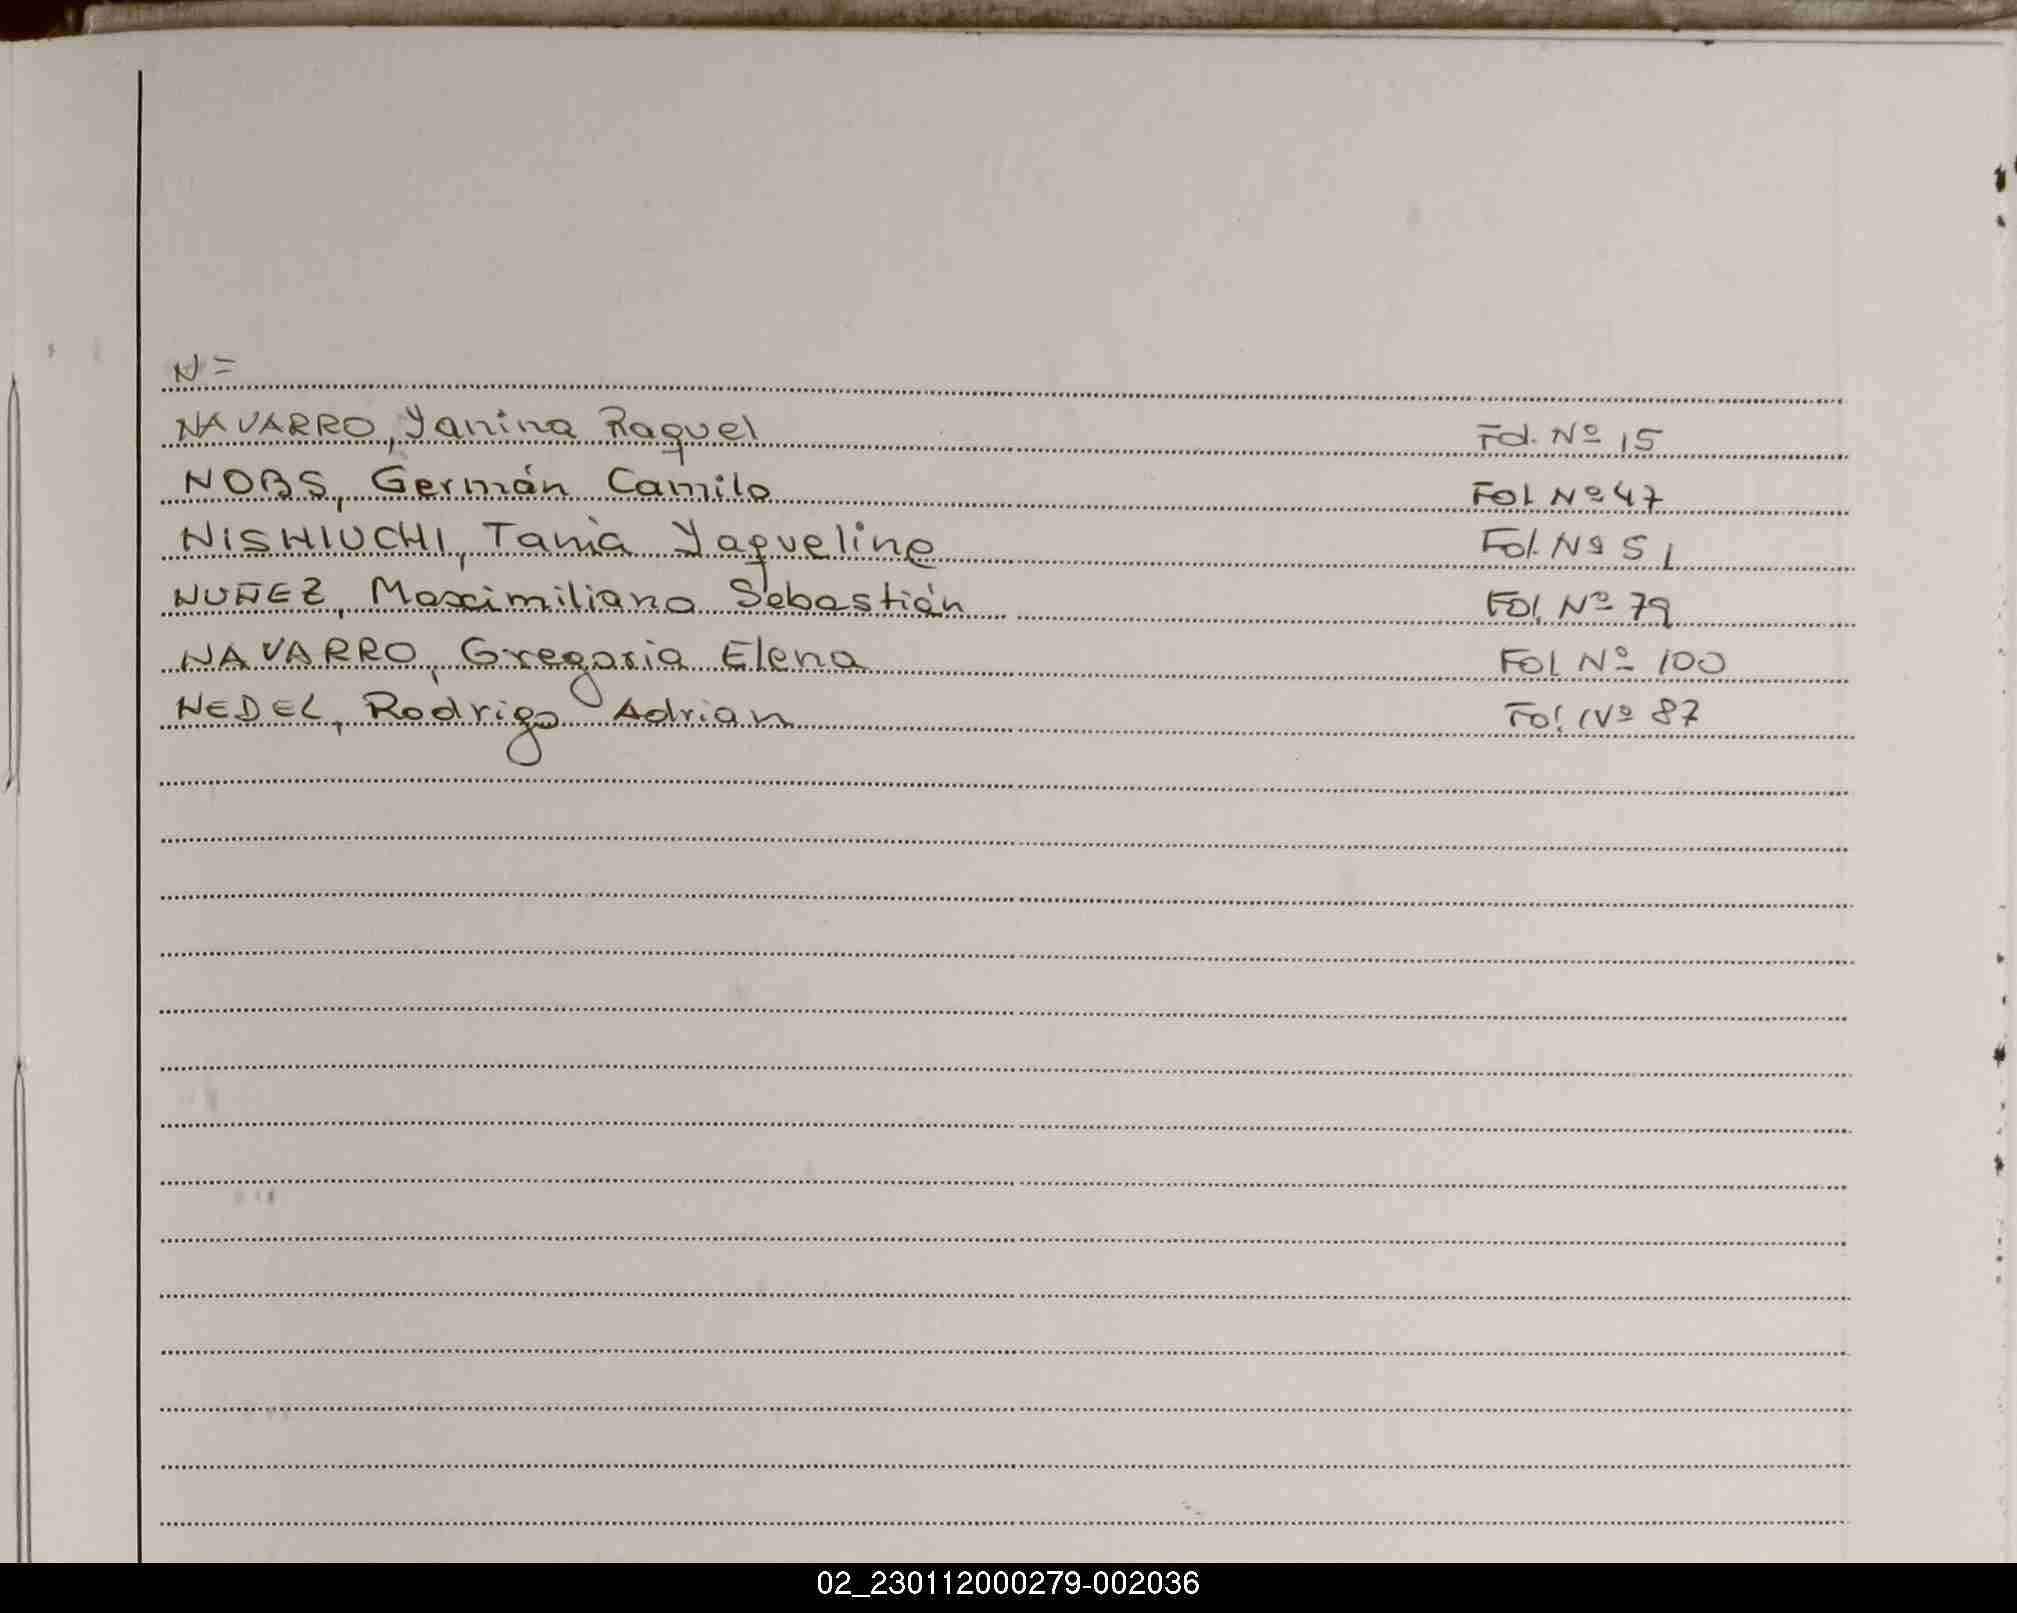 N=
NAVARRO, Yanina Raquel Fol. Nº 15
NOBS, Germán Camilo Fol Nº 47
NISHIUCHI, Tania Yaqueline Fol. Nº 51
NUÑEZ, Maximiliano Sebastián Fol. Nº 79
NAVARRO, Gregoria Elena Fol Nº 100
NEDEL, Rodrigo Adrian Fol. Nº 87
02_230112000279-002036